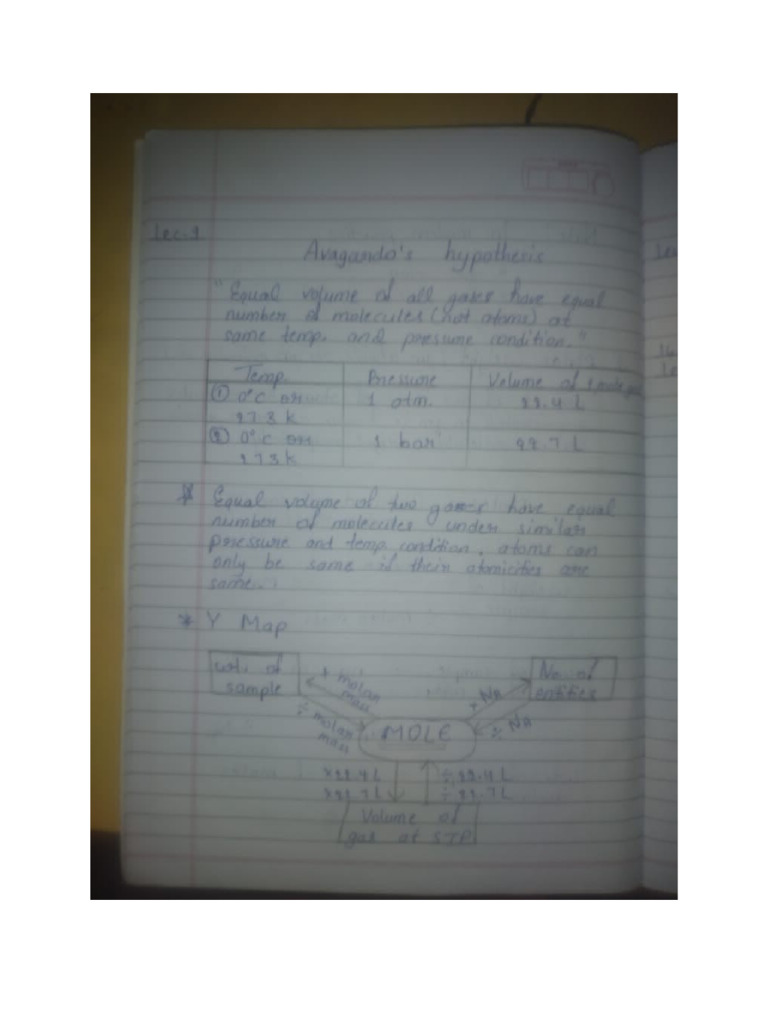 Lec. 1
Avagando's hypothesis
"Equal volume of all gases have equal
number of molecules (not atoms) at
same temp. and pressure condition."
Temp. Pressure Volume of 1 mole
① 0°C or 1 atm. 22.4 L
273 K
② 0°C or 1 bar 22.7 L
273 K
* Equal volume of two gases have equal
number of molecules under similar
pressure and temp. condition. atoms can
only be same if their atomicities are
same.
* Y Map
wt. of
sample
× molar
mass
÷ molar
mass
MOLE
× NA
÷ NA
No. of
entities
×22.4 L ÷22.4 L
×22.7 L ÷22.7 L
Volume of
gas at STP